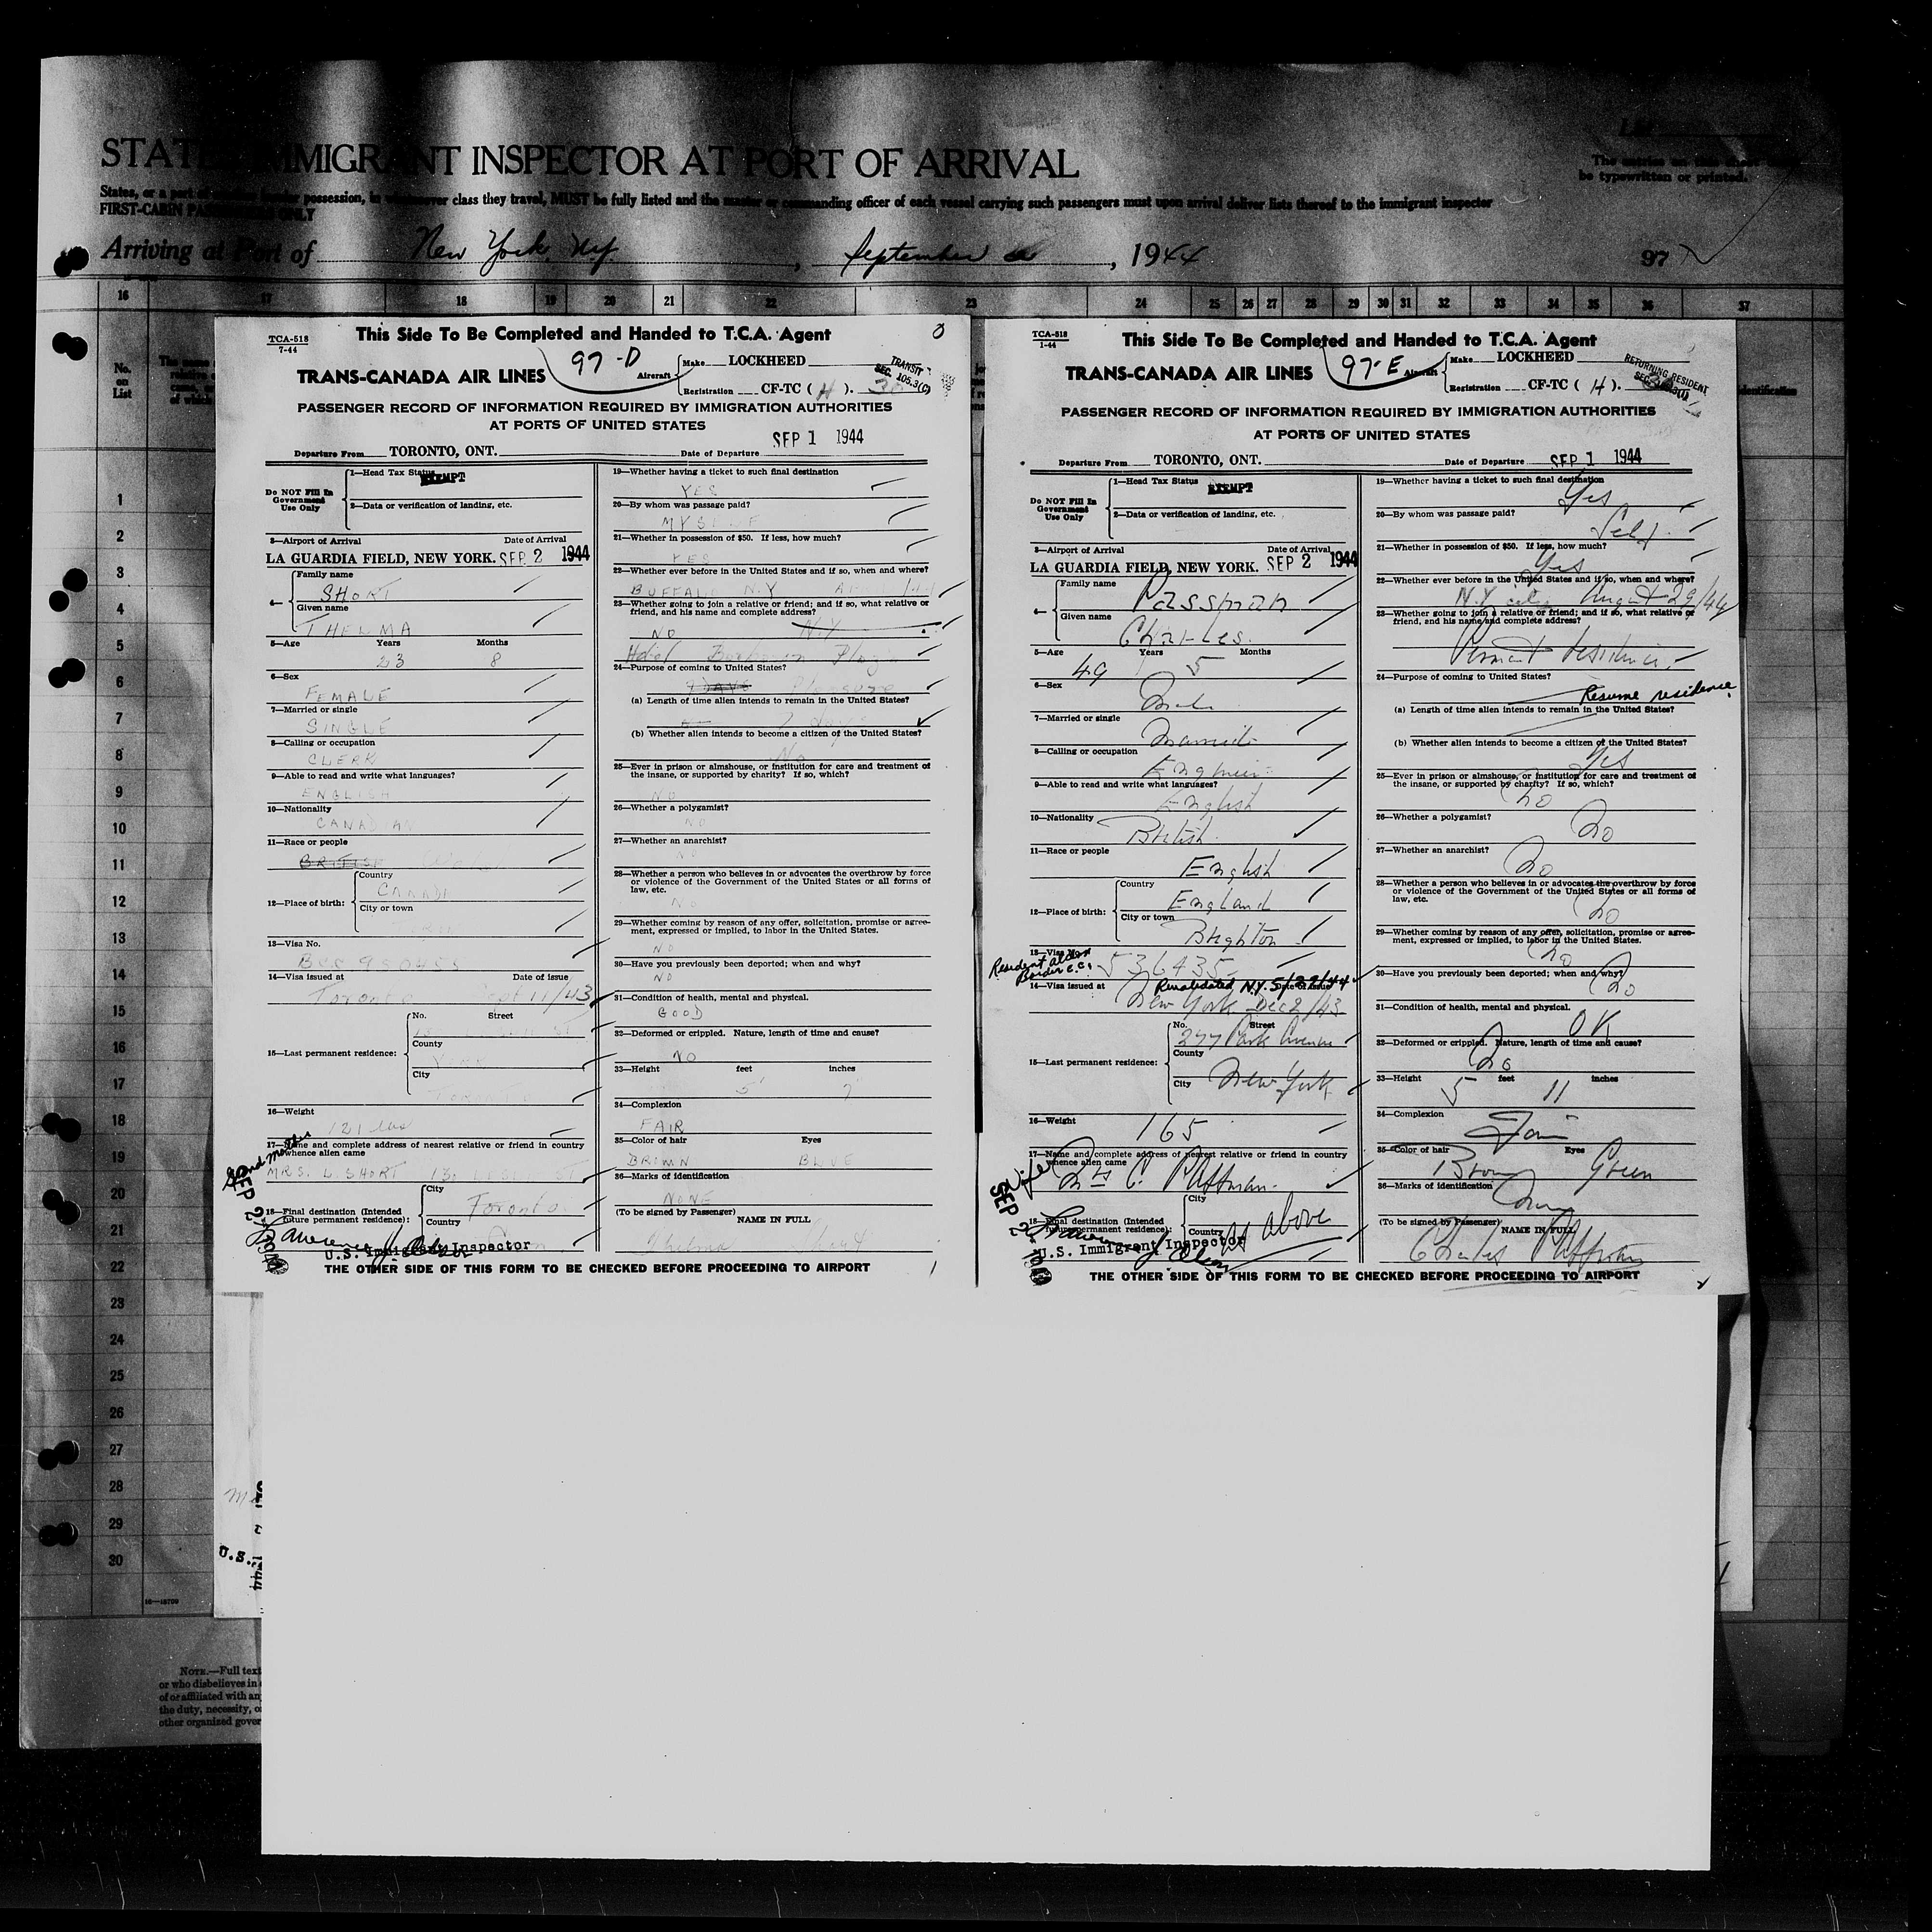 STATES IMMIGRANT INSPECTOR AT PORT OF ARRIVAL
The entries on this sheet
be typewritten or printed.
States, or a port of possession, in whatsoever class they travel, MUST be fully listed and the master or commanding officer of each vessel carrying such passengers must upon arrival deliver lists thereof to the immigrant inspector
FIRST-CABIN PASSENGERS ONLY
Arriving at Port of New York, NY , September , 1944 97
16 17 18 19 20 21 22 23 24 25 26 27 28 29 30 31 32 33 34 35 36 37
No.
on
List
identification
1
2
3
4
5
6
7
8
9
10
11
12
13
14
15
16
17
18
19
20
21
22
23
24
25
26
27
28
29
30
16—18709
NOTE.—Full text
or who disbelieves in
of or affiliated with an
the duty, necessity, o
other organized gover
U.S.
TCA-518
7-44
This Side To Be Completed and Handed to T.C.A. Agent
97-D
TRANS-CANADA AIR LINES
Aircraft Make LOCKHEED
Registration CF-TC ( H ).
TRANSIT
SEC. 105.3(C)
PASSENGER RECORD OF INFORMATION REQUIRED BY IMMIGRATION AUTHORITIES
AT PORTS OF UNITED STATES
SEP 1 1944
Departure From TORONTO, ONT. Date of Departure
Do NOT Fill In
Government
Use Only
1—Head Tax Status EXEMPT
2—Data or verification of landing, etc.
3—Airport of Arrival Date of Arrival
LA GUARDIA FIELD, NEW YORK. SEP 2 1944
4— Family name
SHORT
Given name
THELMA
5—Age Years Months
23 8
6—Sex
FEMALE
7—Married or single
SINGLE
8—Calling or occupation
CLERK
9—Able to read and write what languages?
ENGLISH
10—Nationality
CANADIAN
11—Race or people
BRITISH
12—Place of birth: Country
CANADA
City or town
13—Visa No.
14—Visa issued at Date of issue
Toronto Sept 11/43
15—Last permanent residence: No. Street
County
YORK
City
TORONTO
16—Weight
121 lbs
17—Name and complete address of nearest relative or friend in country
whence alien came
Grandmother
MRS. L. SHORT
18—Final destination (Intended
future permanent residence):
City
Toronto
Country
SEP 2 1944
U.S. Immigrant Inspector
19—Whether having a ticket to such final destination
YES
20—By whom was passage paid?
MYSELF
21—Whether in possession of $50. If less, how much?
YES
22—Whether ever before in the United States and if so, when and where?
BUFFALO N.Y.
23—Whether going to join a relative or friend; and if so, what relative or
friend, and his name and complete address?
NO N.Y.
Hotel Plaza
24—Purpose of coming to United States?
Pleasure
(a) Length of time alien intends to remain in the United States?
7 days
(b) Whether alien intends to become a citizen of the United States?
No
25—Ever in prison or almshouse, or institution for care and treatment of
the insane, or supported by charity? If so, which?
NO
26—Whether a polygamist?
NO
27—Whether an anarchist?
NO
28—Whether a person who believes in or advocates the overthrow by force
or violence of the Government of the United States or all forms of
law, etc.
NO
29—Whether coming by reason of any offer, solicitation, promise or agree-
ment, expressed or implied, to labor in the United States.
NO
30—Have you previously been deported; when and why?
NO
31—Condition of health, mental and physical.
GOOD
32—Deformed or crippled. Nature, length of time and cause?
NO
33—Height feet inches
5' 7"
34—Complexion
FAIR
35—Color of hair Eyes
BROWN BLUE
36—Marks of identification
NONE
(To be signed by Passenger) NAME IN FULL
Thelma Short
THE OTHER SIDE OF THIS FORM TO BE CHECKED BEFORE PROCEEDING TO AIRPORT
TCA-518
1-44
This Side To Be Completed and Handed to T.C.A. Agent
97-E
TRANS-CANADA AIR LINES
Aircraft Make LOCKHEED
Registration CF-TC ( H ).
RETURNING RESIDENT
PASSENGER RECORD OF INFORMATION REQUIRED BY IMMIGRATION AUTHORITIES
AT PORTS OF UNITED STATES
Departure From TORONTO, ONT. Date of Departure SEP 1 1944
Do NOT Fill In
Government
Use Only
1—Head Tax Status EXEMPT
2—Data or verification of landing, etc.
3—Airport of Arrival Date of Arrival
LA GUARDIA FIELD, NEW YORK. SEP 2 1944
4— Family name
Passman
Given name
Charles.
5—Age Years Months
49 5
6—Sex
Male
7—Married or single
Married
8—Calling or occupation
Engineer
9—Able to read and write what languages?
English
10—Nationality
British
11—Race or people
English
12—Place of birth: Country
England
City or town
Brighton
13—Visa No.
Resident alien
Border C.C.
536435
14—Visa issued at Date of issue
Revalidated N.Y. 5/29/44
New York Dec 2/43
15—Last permanent residence: No. Street
277 Park Avenue
County
City New York
16—Weight
165
17—Name and complete address of nearest relative or friend in country
whence alien came
Wife
Mrs C. Passman.
18—Final destination (Intended
future permanent residence):
City
Country
as above
SEP 2 1944
U.S. Immigrant Inspector
19—Whether having a ticket to such final destination
Yes
20—By whom was passage paid?
Self.
21—Whether in possession of $50. If less, how much?
Yes
22—Whether ever before in the United States and if so, when and where?
N.Y. city August 29/44
23—Whether going to join a relative or friend; and if so, what relative or
friend, and his name and complete address?
residence
24—Purpose of coming to United States?
Resume residence
(a) Length of time alien intends to remain in the United States?
(b) Whether alien intends to become a citizen of the United States?
Yes
25—Ever in prison or almshouse, or institution for care and treatment of
the insane, or supported by charity? If so, which?
No
26—Whether a polygamist?
No
27—Whether an anarchist?
No
28—Whether a person who believes in or advocates the overthrow by force
or violence of the Government of the United States or all forms of
law, etc.
No
29—Whether coming by reason of any offer, solicitation, promise or agree-
ment, expressed or implied, to labor in the United States.
No
30—Have you previously been deported; when and why?
No
31—Condition of health, mental and physical.
OK
32—Deformed or crippled. Nature, length of time and cause?
No
33—Height feet inches
5 11
34—Complexion
Fair
35—Color of hair Eyes
Brown Green
36—Marks of identification
None
(To be signed by Passenger) NAME IN FULL
Charles Passman
THE OTHER SIDE OF THIS FORM TO BE CHECKED BEFORE PROCEEDING TO AIRPORT